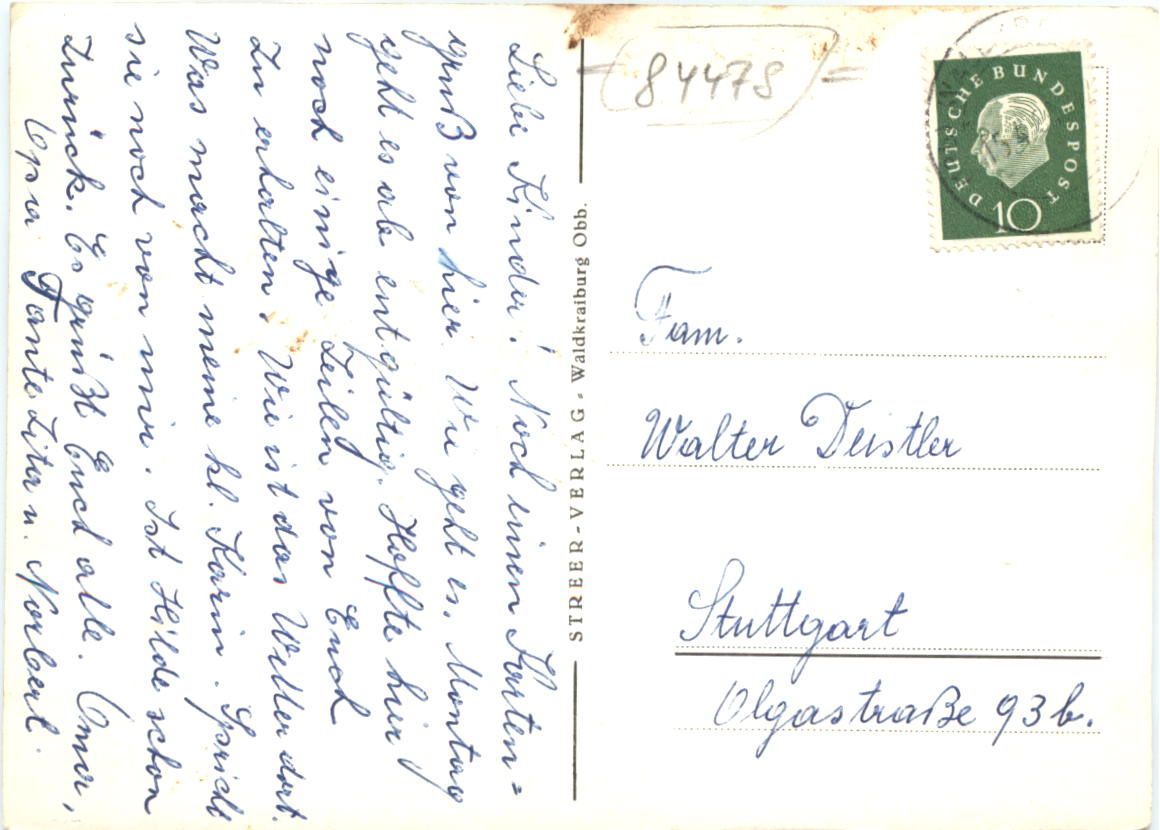 Liebe Kinder! Noch einen Karten=
gruß von hier. Wie geht es. Montag
geht es ab entgültig. Hoffte hier
noch einige Zeilen von Euch
zu erhalten. Wie ist das Wetter dort.
Was macht meine kl. Karin. Spricht
sie noch von mir. Ist Hilde schon
zurück. Es grüßt Euch alle. Oma,
Opa Tante Zita u. Norbert.
STREER-VERLAG - Waldkraiburg Obb.
84478
DEUTSCHE BUNDESPOST
10
Fam.
Walter Deistler
Stuttgart
Olgastraße 93b.